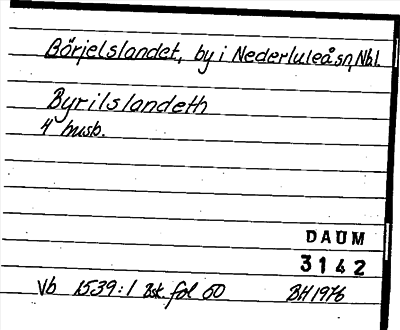 Börjelslandet, by i Nederluleå sn, Nbl
Byrilslandeth
4 husb.
DAUM
3142
Vb 1539:1 Bsk. fol 60 BH 1976